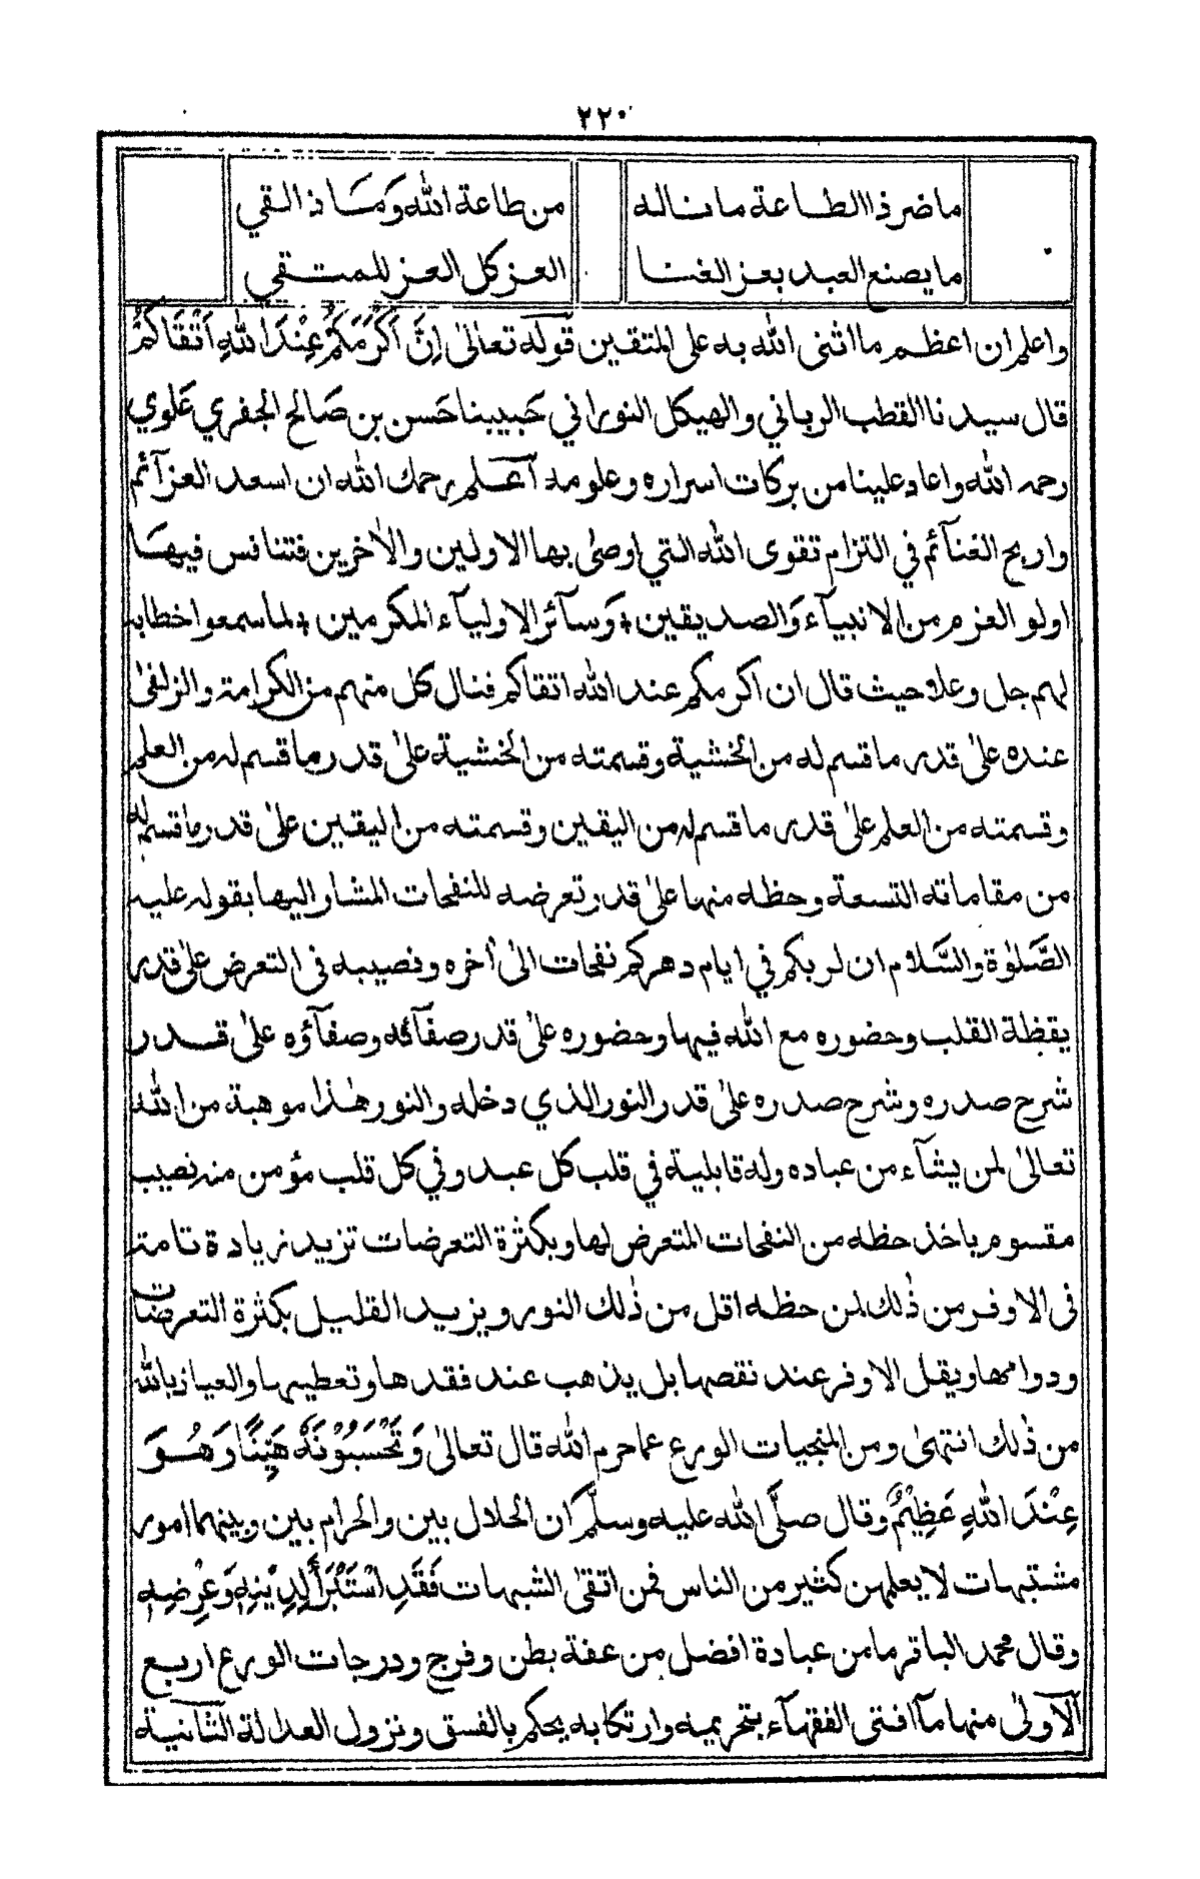 ٢٢٠
ماضر ذا الطاعة ما ناله من طاعة الله وَمَا ذا لقي
ما يصنع العبد بعز الغنا العز كل العز للمتقي
واعلم ان اعظم ما اثنى الله به على المتقين قوله تعالىٰ اِنَّ اَكْرَمَكُمْ عِنْدَ اللهِ اَتْقَاكُمْ
قال سيدنا القطب الرباني والهيكل النوراني حَبيبنا حَسن بن صَالح الجفري عَلوي
رحمه الله واعاد علينا من بركات اسراره وعلومه اعلم رحمك الله ان اسعد العزآئم
واربح الغنآئم في التزام تقوى الله التي اوصىٰ بها الاولين والاٰخرين فتنافس فيهَا
اولو العزم من الانبيآء وَالصديقين + وَسآئر الاوليآء المكرمين + لما سمعوا خطابه
لهم جل وعلا حيث قال ان اكرمكم عند الله اتقاكم فنال كل منهم من الكرامة والزلفىٰ
عنده علىٰ قدر ما قسم له من الخشية وقسمته من الخشية علىٰ قدر ما قسم له من العلم
وقسمته من العلم علىٰ قدر ما قسم له من اليقين وقسمته من اليقين علىٰ قدر ما قسم له
من مقاماته التسعة وحظه منها علىٰ قدر تعرضه للنفحات المشار اليها بقوله عليه
الصَّلوٰة والسَّلام ان لربكم في ايام دهركم نفحات الىٰ اٰخره ونصيبه فى التعرض علىٰ قدر
يقظة القلب وحضوره مع الله فيها وحضوره علىٰ قدر صفآئه وصفآؤه علىٰ قدر
شرح صدره وشرح صدره علىٰ قدر النور الذي دخله والنور هٰذا موهبة من الله
تعالىٰ لمن يشآء من عباده وله قابلية في قلب كل عبد وفي كل قلب مؤمن منه نصيب
مقسوم ياخذ حظه من النفحات المتعرض لها وبكثرة التعرضات تزيد زيادة تامة
فى الاوفر من ذٰلك لمن حظه اقل من ذٰلك النور ويزيد القليل بكثرة التعرضات
ودوامها ويقل الاوفر عند نقصها بل يذهب عند فقدها وتعطيها والعياذ بالله
من ذٰلك انتهىٰ ومن المنجيات الورع عما حرم الله قال تعالىٰ وَتَحْسَبُوْنَهٗ هَيِّنًا وَهُوَ
عِنْدَ اللهِ عَظِيْمٌ وقال صلَّى الله عليه وسلَّم ان الحلال بين والحرام بين وبينهما امور
مشتبهات لا يعلمهن كثير من الناس فمن اتقىٰ الشبهات فَقَدِ اسْتَبْرَأَ لِدِيْنِهٖ وَعِرْضِهٖ
وقال محمد الباقر ما من عبادة افضل من عفة بطن وفرج ودرجات الورع اربع
الاولىٰ منها مآ افتى الفقهآء بتحريمه وارتكابه يحكم بالفسق ونزول العدالة الثانية